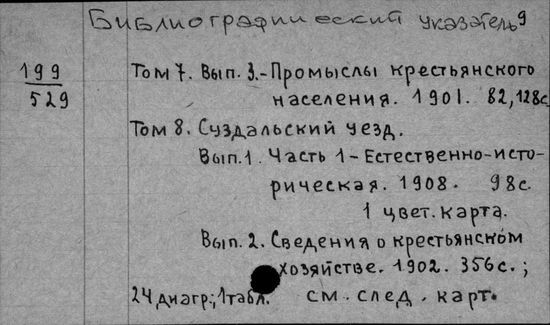 Библиографический указатель 9
199
529
Том 7. Вып. 3.-Промыслы крестьянского
населения. 1901. 82,128с
Том 8. Суздальский уезд.
Вып.1. Часть 1-Естественно-исто-
рическая. 1908. 98с.
1 цвет.карта.
Вып. 2. Сведения о крестьянском
хозяйстве. 1902. 356с.;
24диагр.;1табл. см. след. карт.